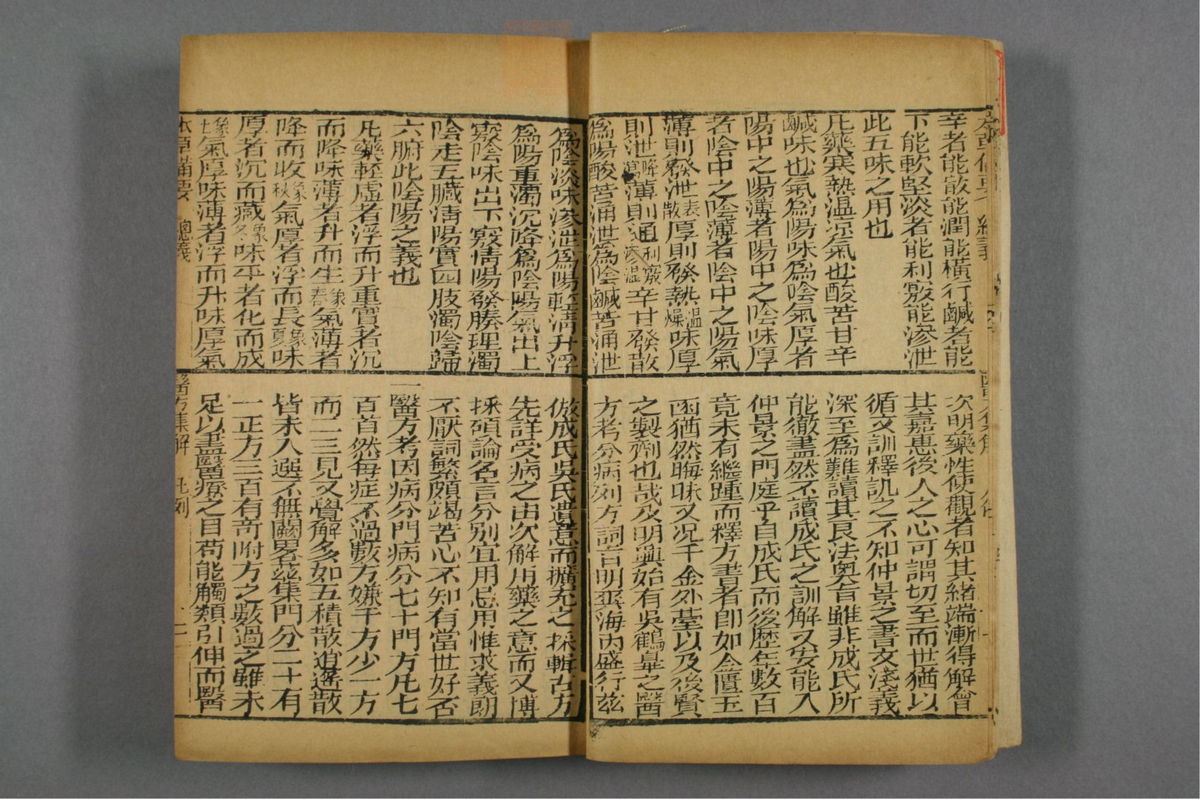 辛者能散能潤能橫行鹹者能
下能軟堅淡者能利竅能滲泄
此五味之用也
凡藥寒熱溫涼氣也酸苦甘辛
鹹味也氣爲陽味爲陰氣厚者
陽中之陽薄者陽中之陰味厚
者陰中之陰薄者陰中之陽氣
薄則發泄表散厚則發熱溫燥味厚
則泄降瀉薄則通利竅滲濕辛甘發散
爲陽酸苦涌泄爲陰鹹苦涌泄
爲陰淡味滲泄爲陽輕清升浮
爲陽重濁沉降爲陰陽氣出上
竅陰味出下竅清陽發腠理濁
陰走五臟清陽實四肢濁陰歸
六腑此陰陽之義也
凡藥輕虛者浮而升重實者沉
而降味薄者升而生象春氣薄者
降而收象秋氣厚者浮而長象夏味
厚者沉而藏象冬味平者化而成
象土氣厚味薄者浮而升味厚氣
本草備要 總義
次明藥性使觀者知其緒端漸得解會
其嘉惠後人之心可謂切至而世猶以
循文訓釋譏之不知仲景之書文淺義
深至爲難讀其良法奧旨雖非成氏所
能徹盡然不讀成氏之訓解又安能入
仲景之門庭乎自成氏而後歷年數百
竟未有繼踵而釋方書者卽如金匱玉
函猶然晦昧又况千金外臺以及後賢
之製劑也哉及明興始有吳鶴皐之醫
方考分病列方詞旨明爽海內盛行茲
倣成氏吳氏遺意而擴充之採輯古方
先詳受病之由次解用藥之意而又博
採碩論名言分別宜用忌用惟求義朗
不厭詞繁頗竭苦心不知有當世好否
一醫方考因病分門病分七十門方凡七
百然每症不過數方嫌于方少一方
而二三見又覺解多如五積散逍遙散
皆未入選不無闕畧茲集門分二十有
一正方三百有奇附方之數過之雖未
足以盡醫療之目苟能觸類引伸而醫
醫方集解 凡例 二